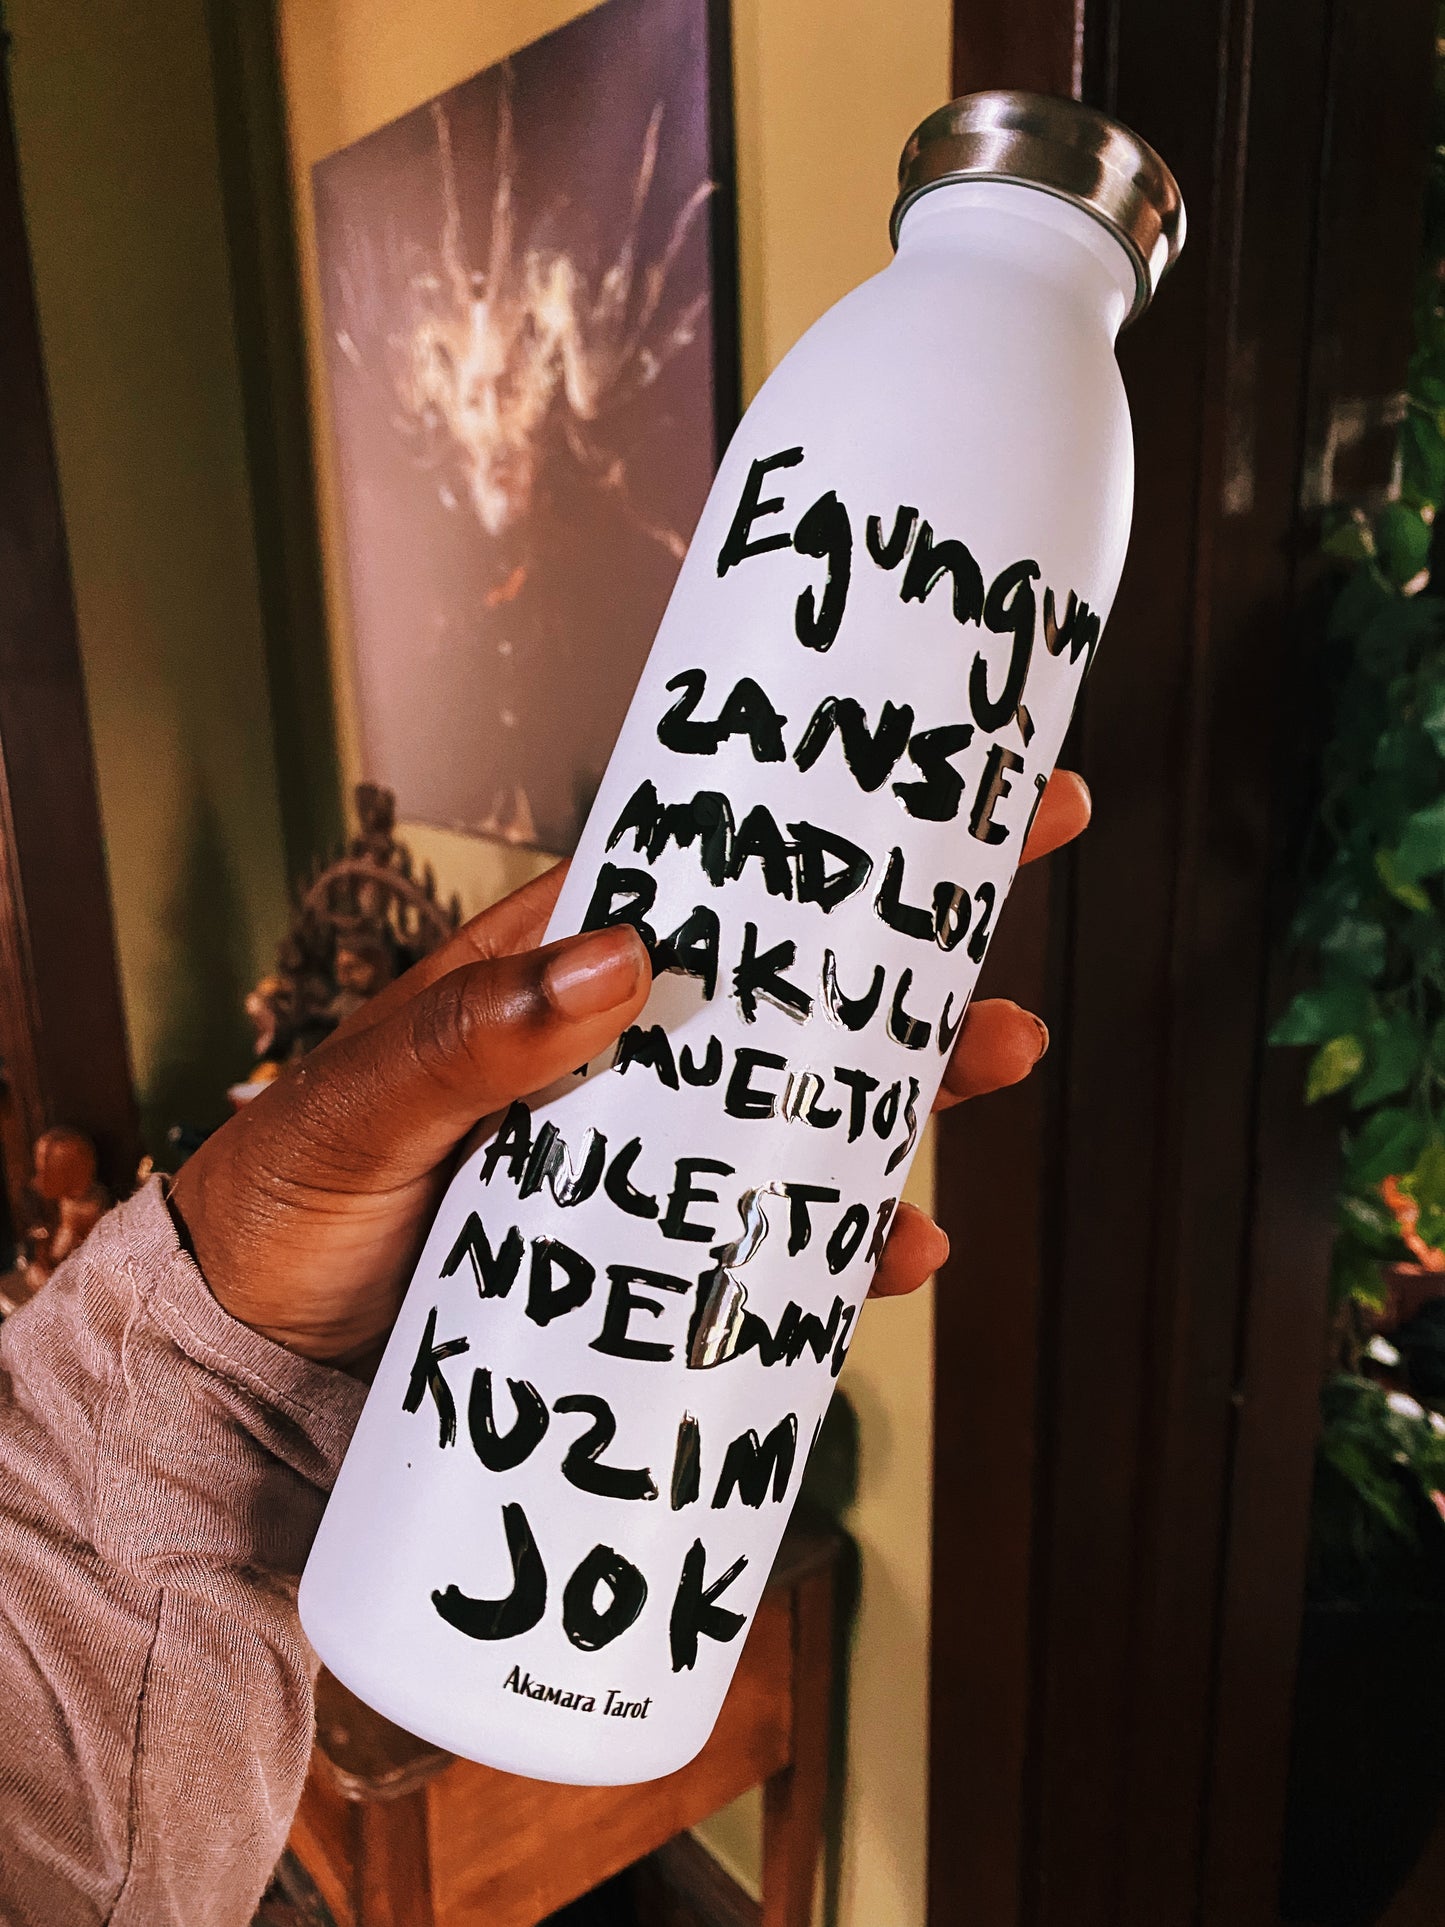 Egungun
ZANSÈT
AMADLOZ
BAKULU
MUERTOS
ANCESTOR
NDE
KUZIMU
JOK
Akamara Tarot